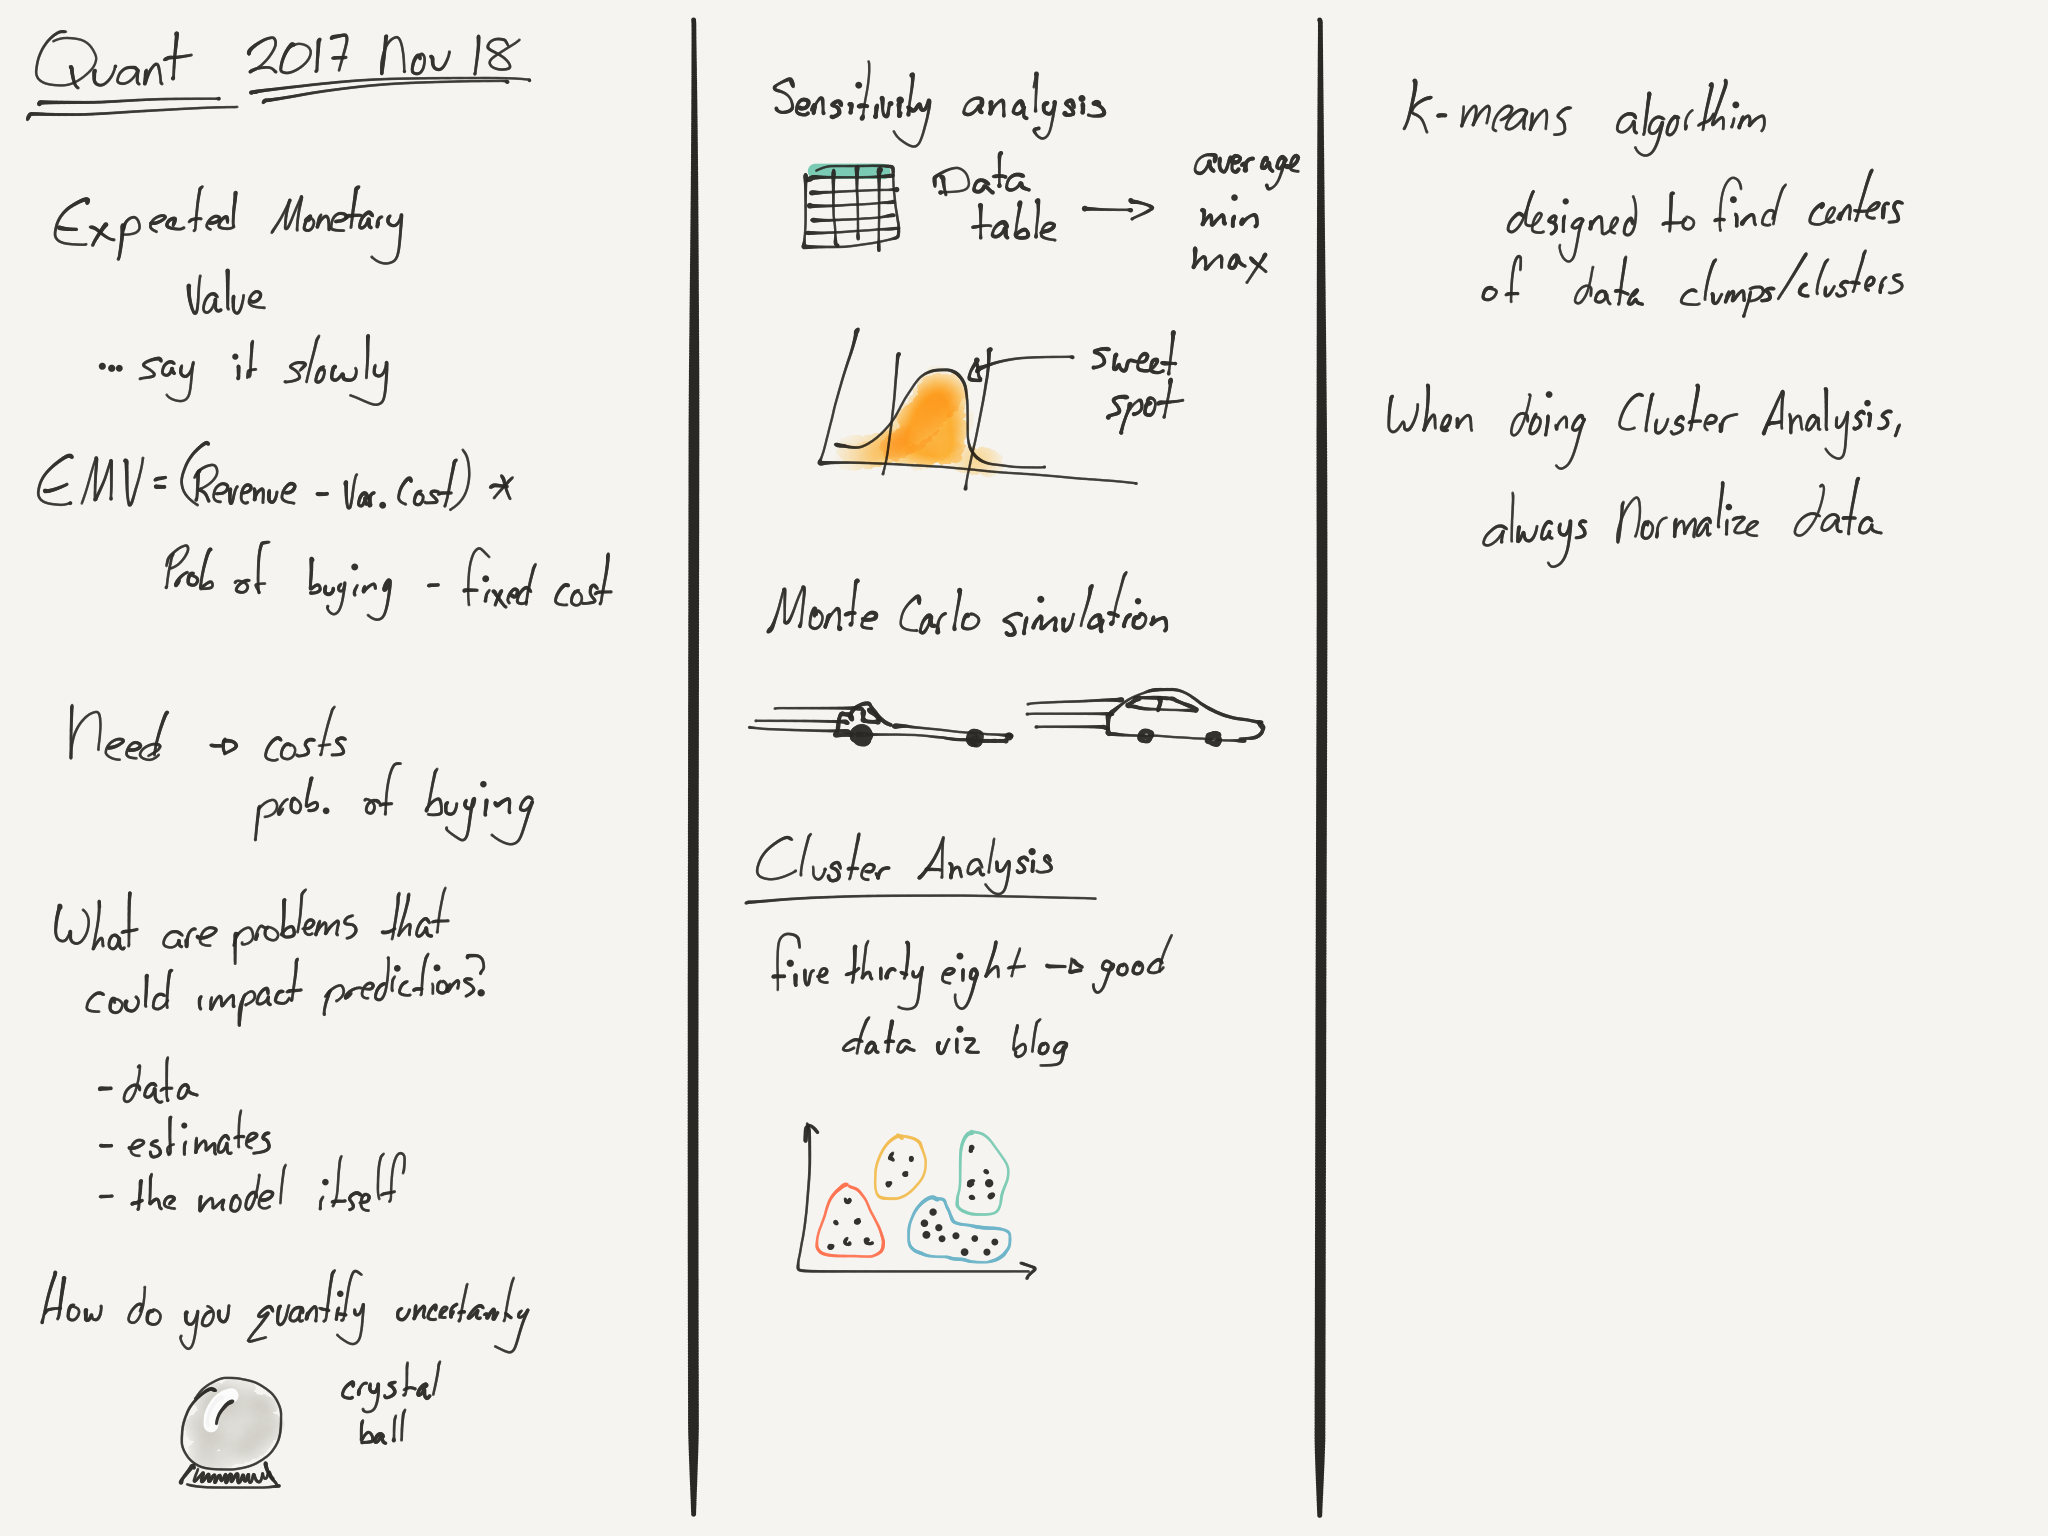 Quant 2017 Nov 18
Expected Monetary
Value
... say it slowly
EMV = (Revenue - Var. Cost) *
Prob of buying - fixed cost
Need → costs
prob. of buying
What are problems that
could impact predictions?
- data
- estimates
- the model itself
How do you quantify uncertanty
crystal
ball
Sensitivity analysis
Data
table →
average
min
max
sweet
spot
Monte Carlo simulation
Cluster Analysis
five thirty eight → good
data viz blog
K-means algorthim
designed to find centers
of data clumps/clusters
When doing Cluster Analysis,
always Normalize data